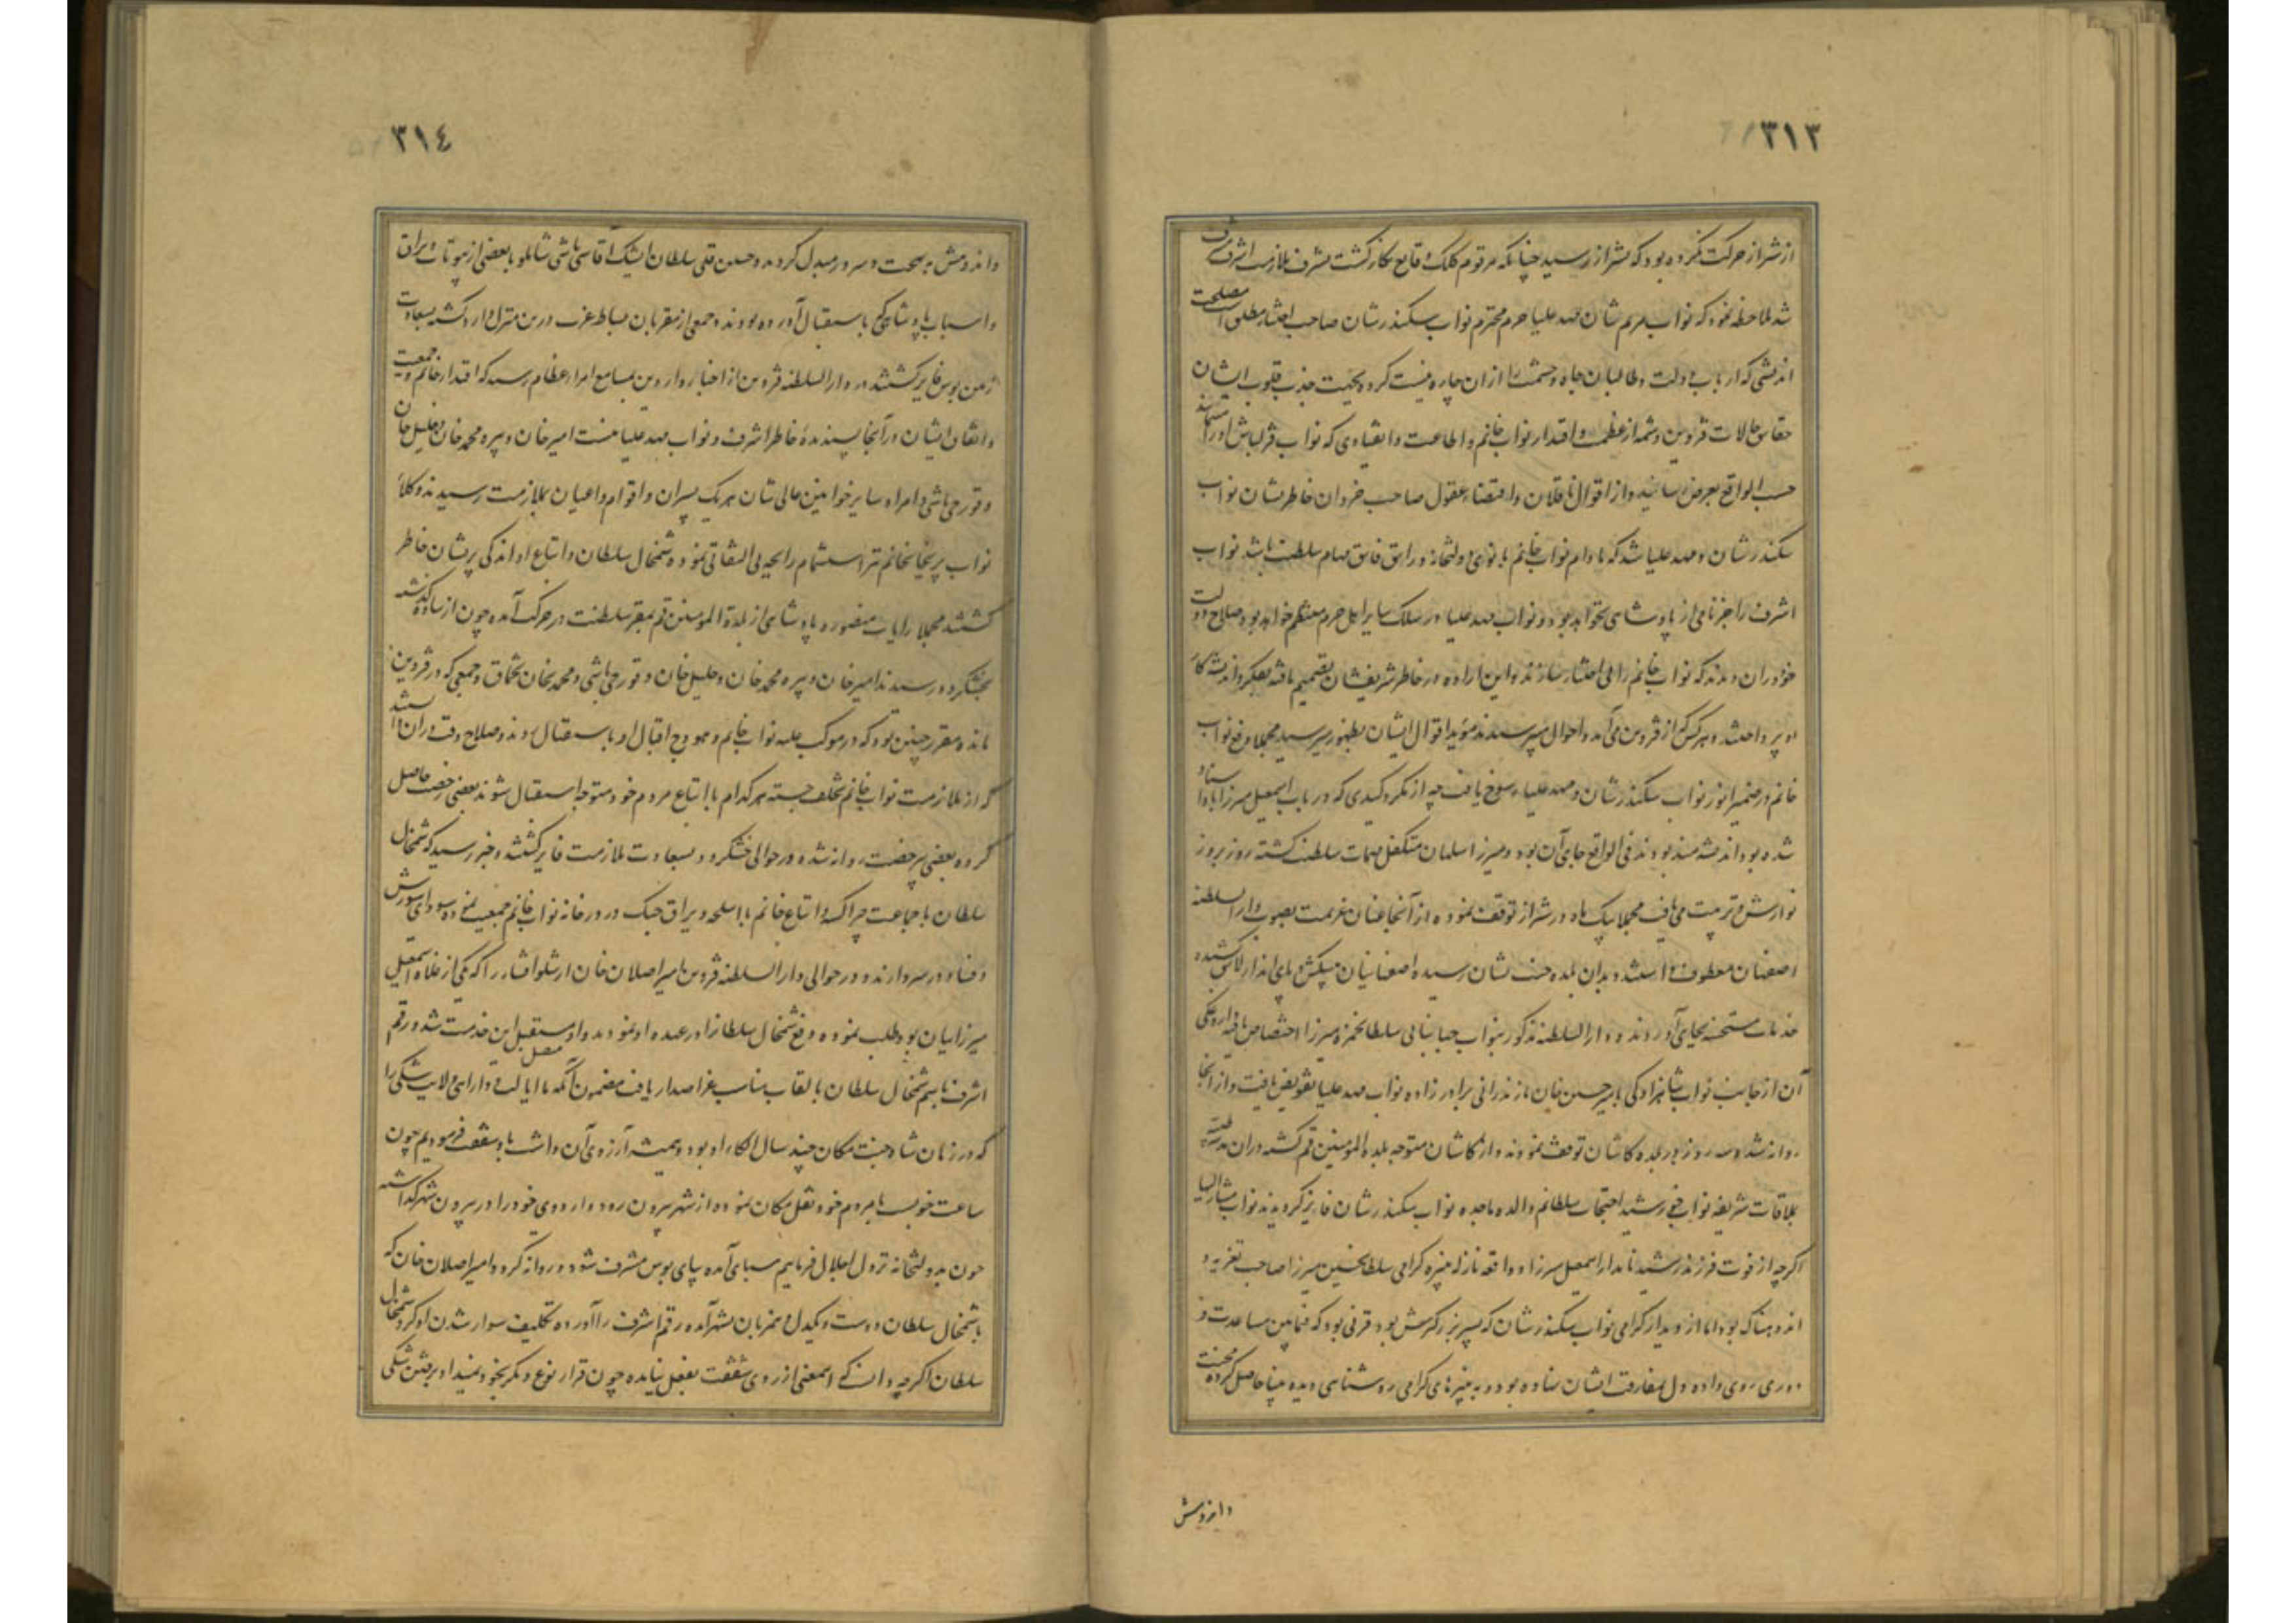 ٣١٣
از شیراز حرکت نکرده بود که بشیراز رسید چنانکه مرقوم کلک وقایع نگار گشت بشرف ملازمت اشرف مشرف
شد ملاحظه نمود که نواب مریم شان مهد علیا حرم محترم نواب سکندرشان صاحب اختیار مطلق است مصلحت
اندیشی که ارباب دولت و طالبان جاه و حشمت را از ان چاره نیست کرده بجهت جذب قلوب ایشان
حقایق حالات قزوین و شمه از عظمت و اقتدار نواب خانم و اطاعت و انقیادی که نواب قزلباش او را
حسب الواقع بعرض رسانیده و از اقوال ناقلان و اقتضاء عقول صاحب خردان خاطرنشان نواب
سکندرشان و مهد علیا شد که مادام نواب خانم بانوی دولتخانه و راتق فاتق مهام سلطنت باشد نواب
اشرف را جز نامی از پادشاهی نخواهد بود و نواب مهد علیا در سلک سایر اهل حرم منتظم خواهد بود صلاح دولت
خود در ان دیدند که نواب خانم را بی اختیار سازند و این اراده در خاطر شریفشان تصمیم یافته بفکر و اندیشه کار
او پرداختند و هر کس از قزوین می آمد و احوال میپرسیدند مؤید اقوال ایشان بظهور میرسید مجملا دفع نواب
خانم در ضمیر انور نواب سکندرشان و مهد علیا رسوخ یافت چه از مکر و کیدی که در باب اسمعیل میرزا با او اسناد
شده بود اندیشه مند بودند فی الواقع جای آن بود و میرزا سلمان متکفل مهمات سلطنت گشته روز بروز
نوازش و تربیت می یافت مجملا یک ماه در شیراز توقف نموده از آنجا عنان عزیمت بصوب دار السلطنه
اصفهان معطوف داشتند و بدان بلده جنت نشان رسیده اصفهانیان پیشکش و پای انداز لایق کشیده
خدمات مستحسنه بجای آوردند و دار السلطنه مذکور بنواب جهانبانی سلطانحمزه میرزا اختصاص یافته داروغکی
آن از جانب نواب شاهزادگی بامیر حسین خان مازندرانی برادرزاده نواب مهد علیا تفویض یافت و از آنجا
روانه شده سه روز در بلده کاشان توقف نمودند و از کاشان متوجه بلده المومنین قم گشته در ان مدینه طیبه
بملاقات شریفه نواب خورشید احتجاب سلطانم والده ماجده نواب سکندرشان فایز گردیدند نواب مشار الیها
اگرچه از فوت فرزند رشید نامدار اسمعیل میرزا و واقعه نازله نبیره گرامی سلطانحسین میرزا صاحب تعزیه و
اندوهناک بود اما از دیدار گرامی نواب سکندرشان که پسر بزرگترش بود قرنی بود که فیمابین مباعدت و
دوری روی داده دل بمفارقت ایشان نهاده بود و به نبیرهای گرامی روشناسی دیده مینا حاصل کرده محنت
و اندوهش
٣١٤
و اندوهش ببهجت و سرور مبدل کردید و حسین قلی سلطان ایشیک آقاسی باشی شاملو با بعضی از بیوتات و یراق
و اسباب پادشاهی باستقبال آورده بودند و جمعی از مقربان بساط عزت در ین منزل وارد گشته بسعادت
زمین بوس فایز گشتند در دار السلطنه قزوین از اخبار واردین بمسامع امراء عظام رسید که اقتدار خانم و جمعیت
و اتفاق ایشان در آنجا پسندیدهٔ خاطر اشرف و نواب مهد علیا نیست امیر خان و پیره محمد خان و خلیل خان
و قورچی باشی و امراء و سایر خوانین عالی شان هر یک پسران و اقوام و اعیان بملازمت رسیدند و کلا
نواب پریخانخانم نیز استشمام رایحه بی التفاتی نموده شمخال سلطان و اتباع او اندکی پریشان خاطر
گشتند مجملا رایات منصوره پادشاهی از بلدة المومنین قم بمقر سلطنت در حرکت آمده چون از ساوه گذشته
بخشکرود رسیدند امیر خان و پیره محمد خان و خلیل خان و قورچی باشی و محمد خان تخماق و جمعی که در قزوین
مانده مقرر چنین بود که در موکب علیه نواب خانم و هودج اقبال او باستقبال روند و صلاح وقت در ان دانستند
که از ملازمت نواب خانم تخلف جسته هر کدام با اتباع مردم خود متوجه استقبال شوند بعضی رخصت حاصل
کرده بعضی بی رخصت روانه شده در حوالی خشکرود بسعادت ملازمت فایز گشتند و خبر رسید که شمخال
سلطان با جماعت چراکسه و اتباع خانم با اسلحه و یراق جنک در در خانه نواب خانم جمعیت نموده سودای شورش
و فساد در سر دارند و در حوالی دار السلطنه قزوین امیر اصلان خان ارشلو افشار را که یکی از غلاه اسمعیل
میرزاییان بود طلب نموده دفع شمخال سلطان را در عهده او نمودند و او مستقبل این خدمت شد و رقم
اشرف باسم شمخال سلطان بالقاب مناسب عز اصدار یافت مضمون آنکه ما ایالت و دارائی ولایت شکی را
که در زمان شاه جنت مکان چند سال الکاء او بود و همیشه آرزوی آن داشت باو شفقت فرمودیم چون
ساعت خوبست با مردم خود نقل مکان نموده از شهر بیرون رود و اردوی خود را در بیرون شهر گذاشته
چون بدولتخانه نزول اجلال فرماییم سبای آمده پای بوس مشرف شود و روانه گردد و امیر اصلان خان که
با شمخال سلطان دوست و یکدل و همزبان بشهر آمده رقم اشرف را آورده تکلیف سوار شدن او کرد شمخال
سلطان اگرچه دانست که اینمعنی از روی شفقت بفعل نیامده چون قرار نوع دیگر بخود نمیداد برفتن شکی